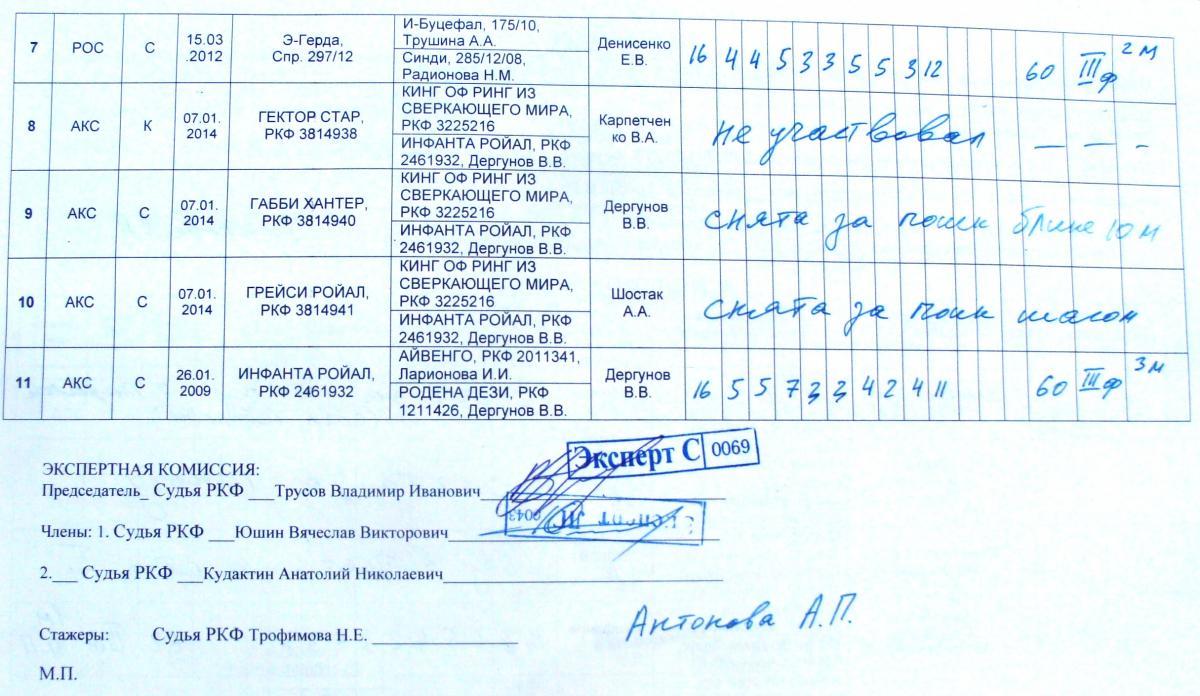 7 РОС С 15.03 .2012 Э-Герда, Спр. 297/12 И-Буцефал, 175/10, Трушина А.А. Синди, 285/12/08, Радионова Н.М. Денисенко Е.В. 16 4 4 5 3 3 5 5 3 12 60 III ф 2 м
8 АКС К 07.01. 2014 ГЕКТОР СТАР, РКФ 3814938 КИНГ ОФ РИНГ ИЗ СВЕРКАЮЩЕГО МИРА, РКФ 3225216 ИНФАНТА РОЙАЛ, РКФ 2461932, Дергунов В.В. Карпетчен ко В.А. не участвовал — — -
9 АКС С 07.01. 2014 ГАББИ ХАНТЕР, РКФ 3814940 КИНГ ОФ РИНГ ИЗ СВЕРКАЮЩЕГО МИРА, РКФ 3225216 ИНФАНТА РОЙАЛ, РКФ 2461932, Дергунов В.В. Дергунов В.В. снята за поиск 10 м
10 АКС С 07.01. 2014 ГРЕЙСИ РОЙАЛ, РКФ 3814941 КИНГ ОФ РИНГ ИЗ СВЕРКАЮЩЕГО МИРА, РКФ 3225216 ИНФАНТА РОЙАЛ, РКФ 2461932, Дергунов В.В. Шостак А.А. снята за поиск шагом
11 АКС С 26.01. 2009 ИНФАНТА РОЙАЛ, РКФ 2461932 АЙВЕНГО, РКФ 2011341, Ларионова И.И. РОДЕНА ДЕЗИ, РКФ 1211426, Дергунов В.В. Дергунов В.В. 16 5 5 7 3 3 4 2 4 11 60 III ф 3 м
Эксперт С 0069
ЭКСПЕРТНАЯ КОМИССИЯ:
Председатель_ Судья РКФ ___Трусов Владимир Иванович
0043 Эксперт
Члены: 1. Судья РКФ ___Юшин Вячеслав Викторович
2.___ Судья РКФ ___Кудактин Анатолий Николаевич
Антонова А.П.
Стажеры: Судья РКФ Трофимова Н.Е.
М.П.